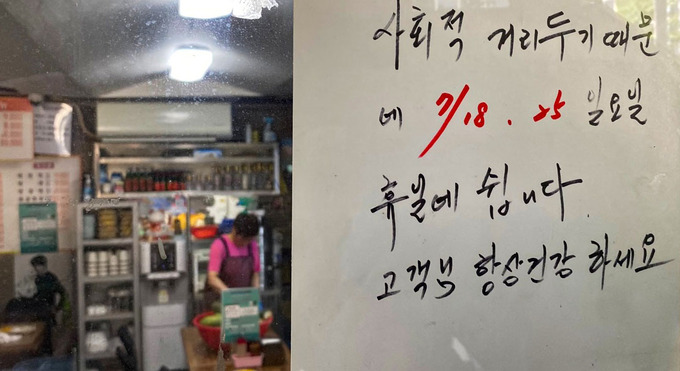 사회적 거리두기때문
네 7/18. 25 일요일
휴일네 쉽니다.
고객님 항상건강 하세요